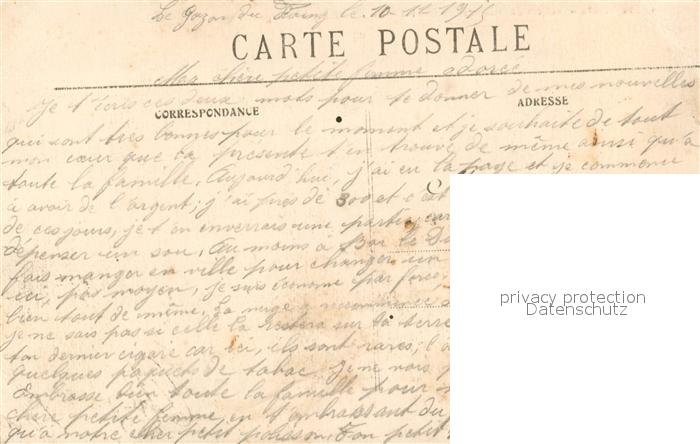 Le Gazon du Faing le 10-12 1915
CARTE POSTALE
Ma chère petite femme adorée
Je t'écris ces deux mots pour te donner de mes nouvelles
CORRESPONDANCE
ADRESSE
qui sont très bonnes pour le moment et je souhaite de tout
mon cœur que la présente t'en trouve de même ainsi qu'à
toute la famille. Aujourd'hui, j'ai eu la paye et je commence
à avoir de l'argent; j'ai près de 300 et c'est
de ces jours, je t'en enverrais une partie, car
dépenser un sou. Au moins à Bar le Du
fais manger en ville pour changer un
ici, pas moyen, je suis économe par force
bien tout de même. La neige a recommencé
je ne sais pas si celle là restera sur la terre
ton dernier cigare car ici, ils sont rares; l
quelques paquets de tabac. Je ne vois
Embrasse bien toute la famille pour m
chère petite femme en t'embrassant du
qu'à notre cher petit polisson. Ton petit
privacy protection
Datenschutz